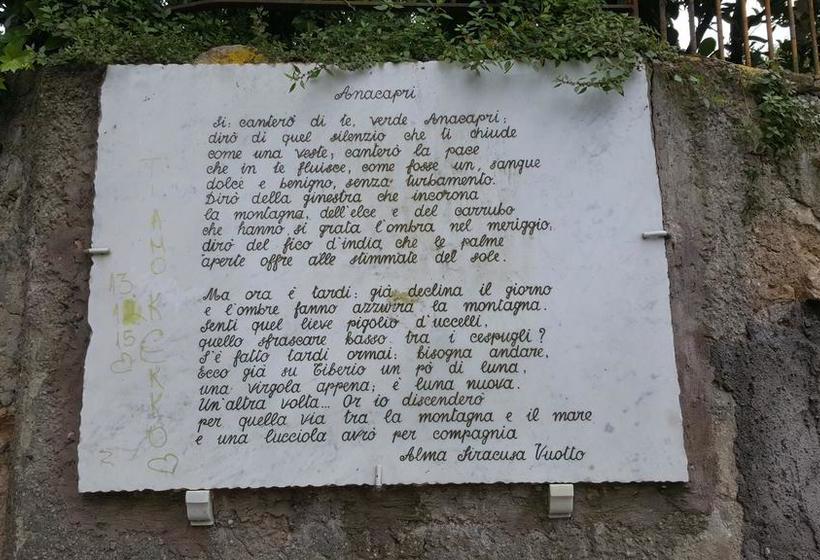 Anacapri
Si: canterò di te, verde Anacapri;
dirò di quel silenzio che ti chiude
come una veste; canterò la pace
che in te fluisce, come fosse un sangue
dolce e benigno, senza turbamento.
Dirò della ginestra che incorona
la montagna, dell'elce e del carrubo
che hanno sì grata l'ombra nel meriggio,
dirò del fico d'india che le palme
aperte offre alle stimmate del sole.
Ma ora è tardi: già declina il giorno
e l'ombre fanno azzurra la montagna.
Senti quel lieve pigolio d'uccelli,
quello sfrascare basso tra i cespugli?
S'è fatto tardi ormai: bisogna andare,
Ecco già su Tiberio un pò di luna,
una virgola appena; è luna nuova.
Un'altra volta... Or io discenderò
per quella via tra la montagna e il mare
e una lucciola avrò per compagnia
Alma Siracusa Vuotto
TI AMO
13
15